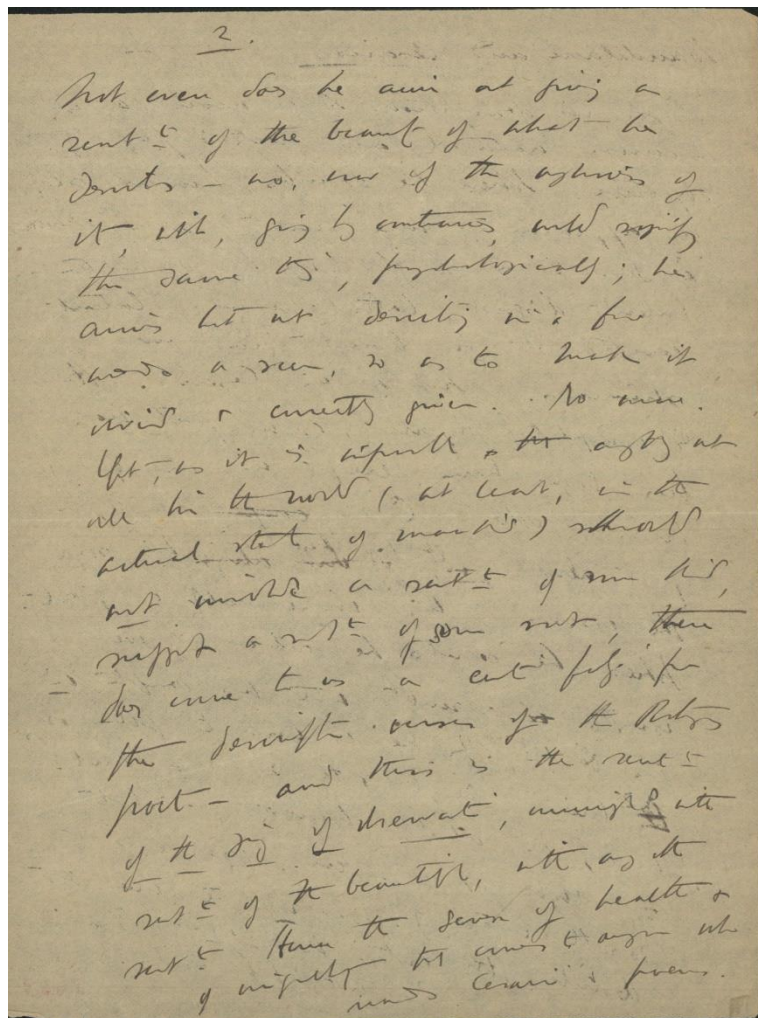 2.
Not even does he aim at giving a
sentt of the beauty of what he
describes — no, nor of the ugliness of
it, wh, going by contraries, would signify
the same thg, psychologically; he
aims but at describg in a few
words a scene, so as to make it
vivid & correctly given. No more.
Yet, as it is impossible anythg at
all in the world (at least, in the
actual state of mankind) should
not involve a sentt of some kind,
suggest a sentt of some sort, there
does come to us a cert feelg from
the descriptive verses of the Portug
poet — and this is the sentt
of the of observati, mingled with
sentt of the beautiful, with any oth
sentt. Hence the sense of health &
of that comes to anyone who
reads Cesario's poems.